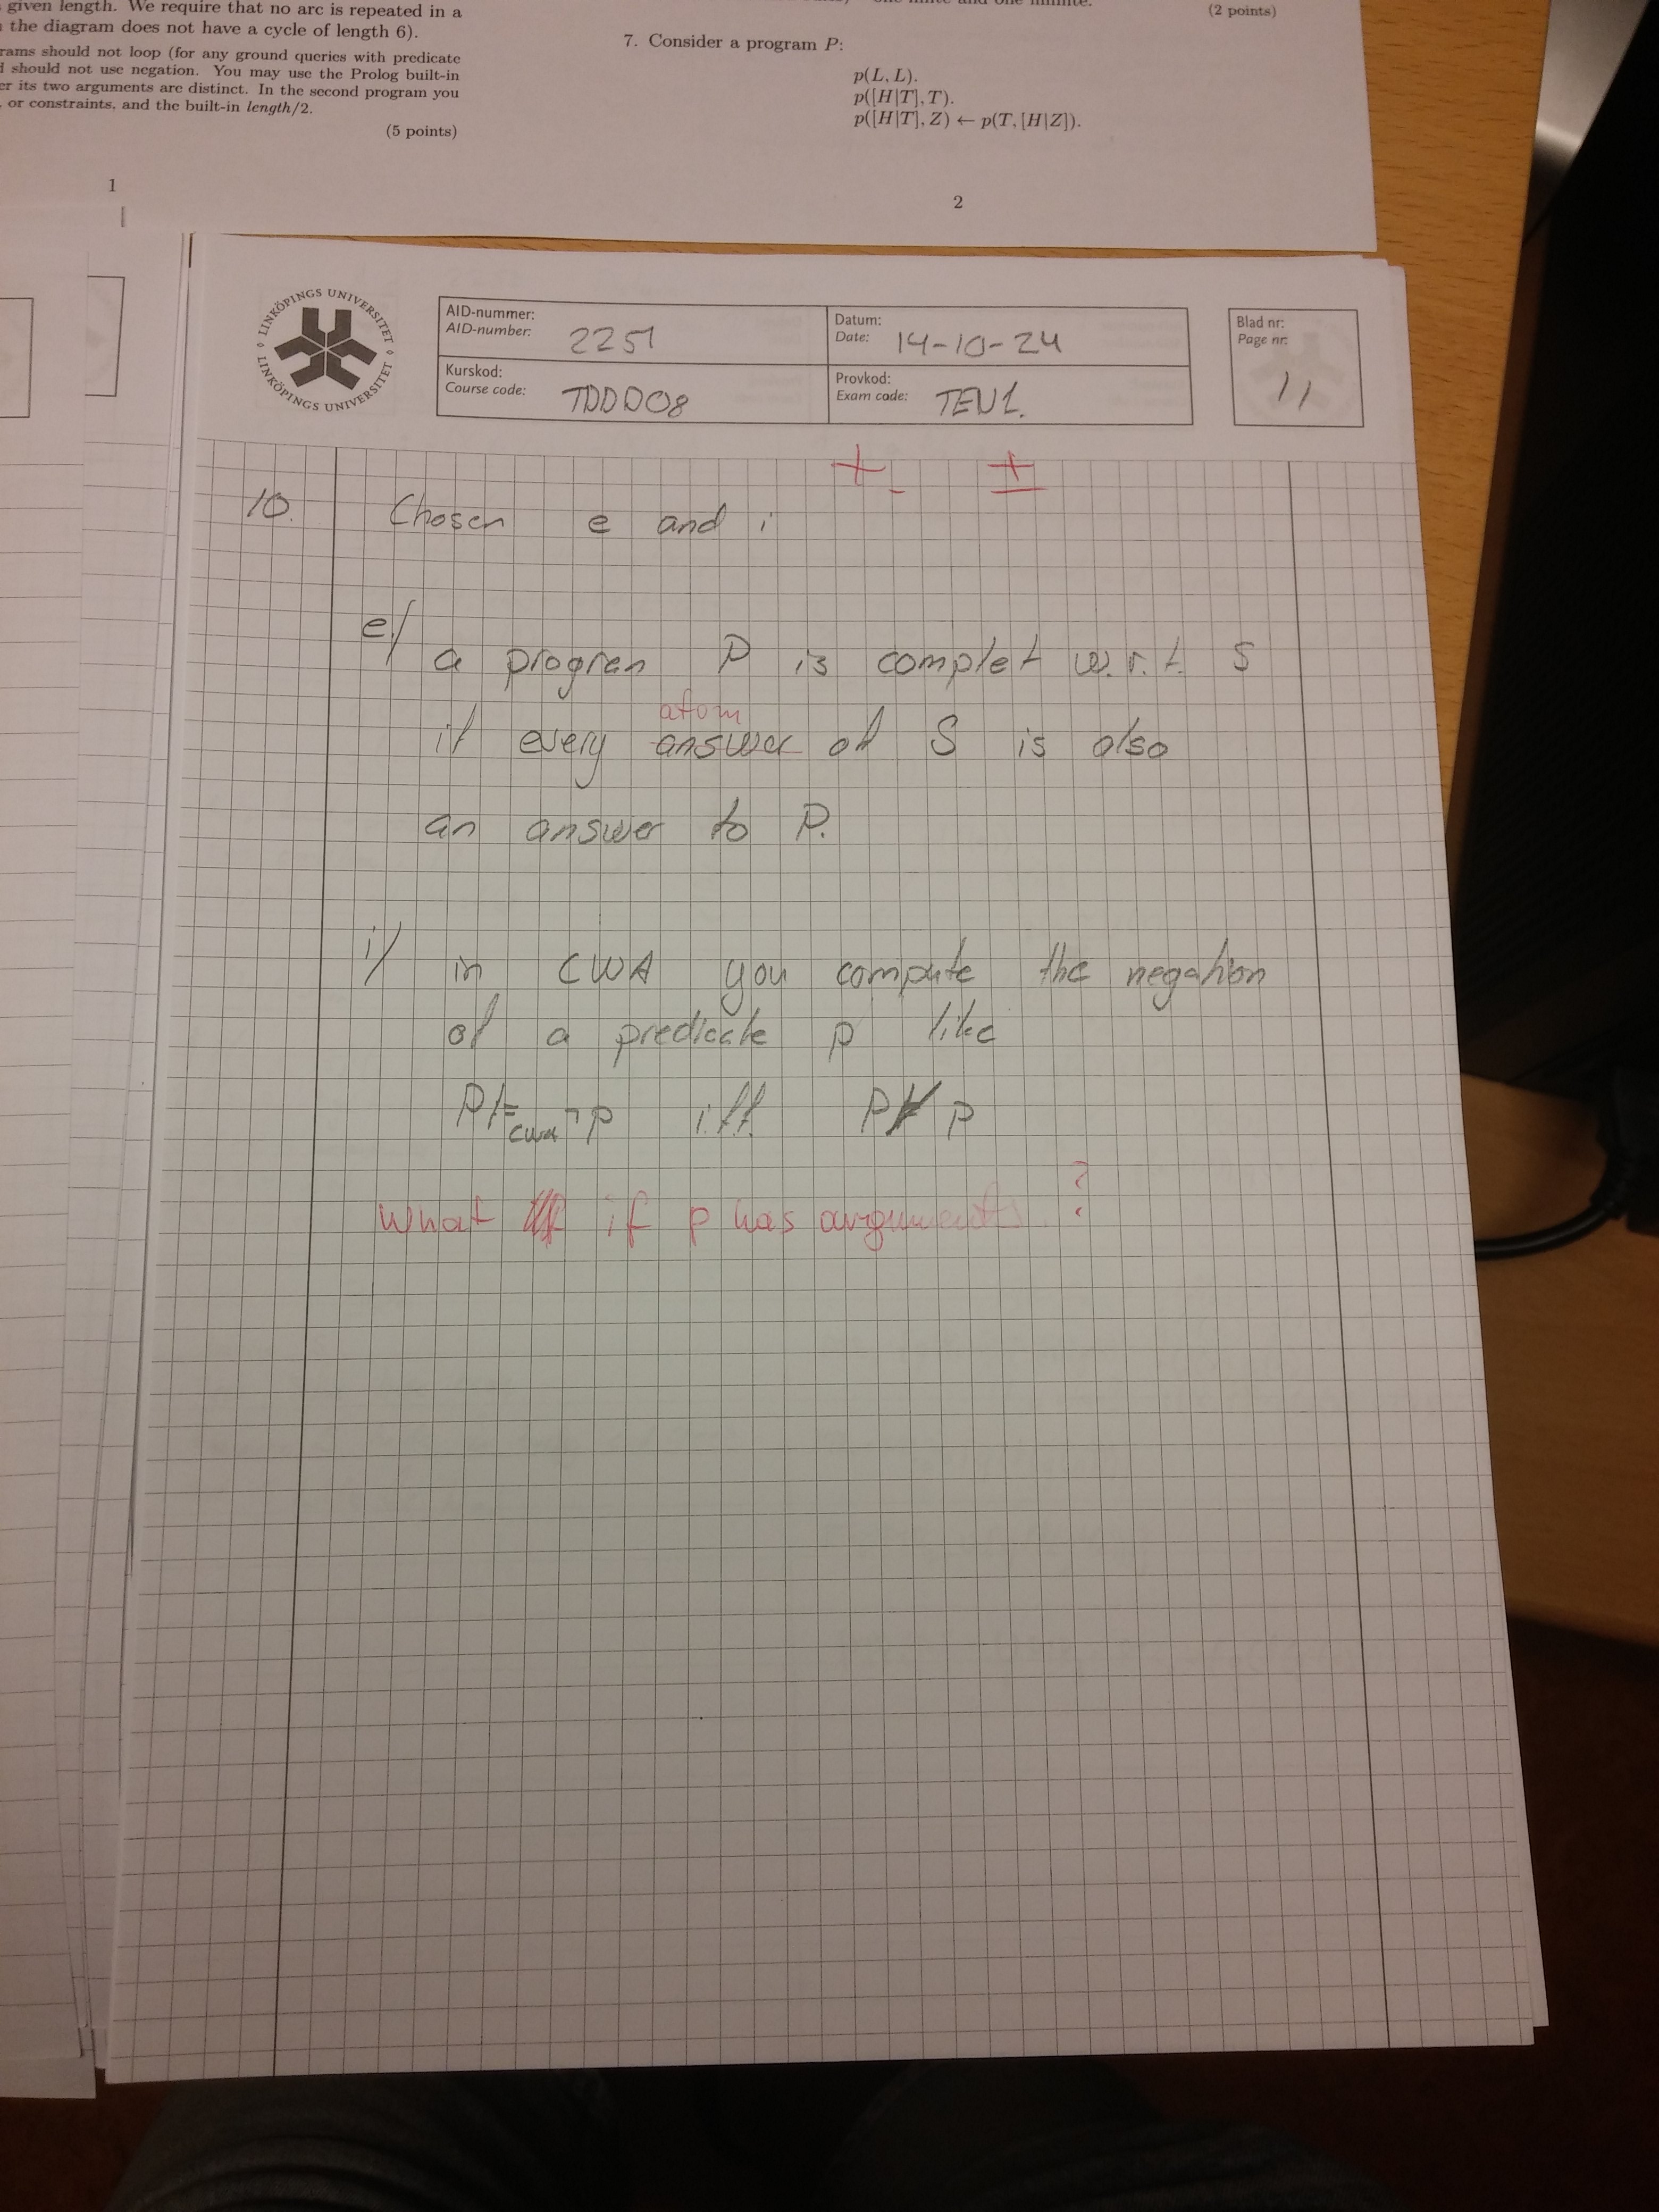 given length. We require that no arc is repeated in a
the diagram does not have a cycle of length 6).
rams should not loop (for any ground queries with predicate
should not use negation. You may use the Prolog built-in
er its two arguments are distinct. In the second program you
or constraints, and the built-in length/2.
(5 points)
1
one finite and one infinite.
(2 points)
7. Consider a program P:
p(L, L).
p([H|T], T).
p([H|T], Z) ← p(T, [H|Z]).
2
LINKÖPINGS UNIVERSITET
LINKÖPINGS UNIVERSITET
AID-nummer:
AID-number: 2251
Datum:
Date: 14-10-24
Kurskod:
Course code: TDDD08
Provkod:
Exam code: TEN1.
Blad nr:
Page nr:
11
+- ±
10. Chosen e and i
e/
a progren P is complet w.r.t. S
atom
if every answer of S is also
an answer to P.
i/ in CWA you compute the negation
of a predicate p like
P⊨cwa ¬p iff. P⊭ p
What if p has arguments?